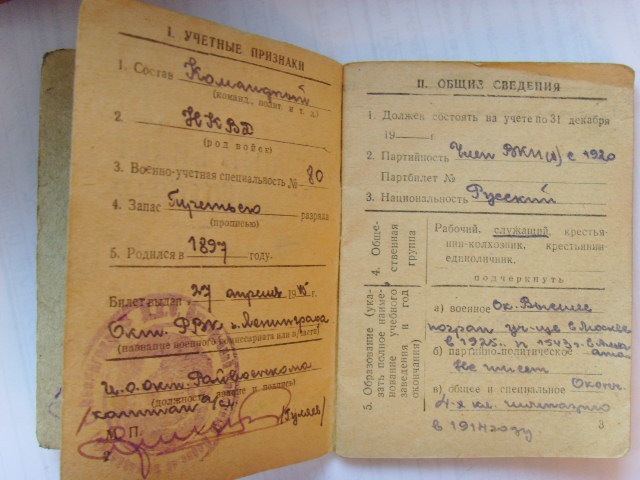 I. УЧЕТНЫЕ ПРИЗНАКИ
1. Состав Командный
(команд., полит. и т. д.)
2. НКВД
(род войск)
3. Военно-учетная специальность № 80
4. Запас Третьего разряда
(прописью)
5. Родился в 1897 году.
Билет выдан 27 апреля 194
Окт. РВК г. Ленинграда
(название военного комиссариата или в/части)
И.о. Окт. Райвоенкома
(должность, звание и подпись)
капитан а/с
М. П.
2
II. ОБЩИЕ СВЕДЕНИЯ
1. Должен состоять на учете по 31 декабря
19 г.
2. Партийность Член ВКП(б) с 1920
Партбилет №
3. Национальность Русский
4. Общественная группа
Рабочий, служащий, крестьянин-колхозник, крестьянин-
единоличник.
подчеркнуть
5. Образование (указать полное наименование учебного заведения и год окончания)
а) военное Ок. Высшее
погран уч-ще в Москве
в 1925
б) партийно-политическое
Не имеет
в) общее и специальное Оконч.
4-х кл.
в 1914 году
3